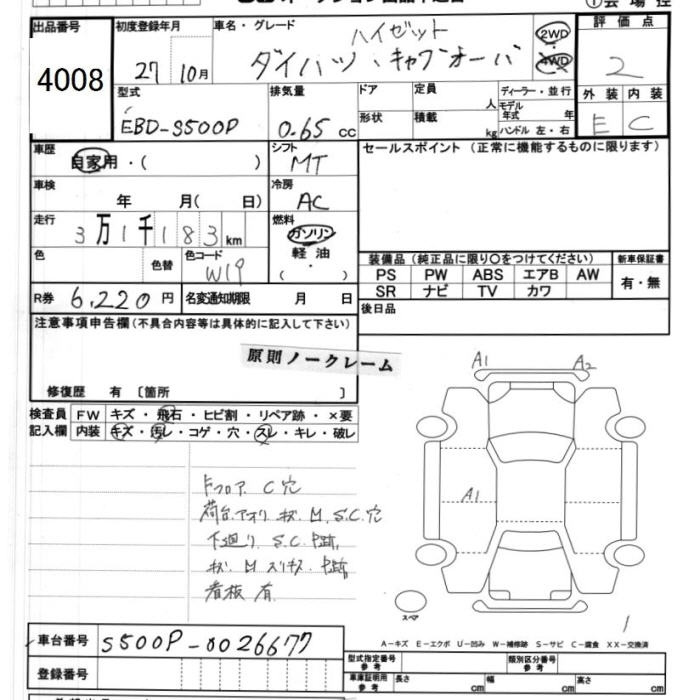 ① 会場控
出品番号
4008
初度登録年月
27 10月
車名・グレード
ハイゼット
ダイハツ、キャブオーバ
2WD
4WD
評価点
2
型式
EBD-S500P
排気量
0.65 cc
ドア
定員
人
形状
積載
kg
ディーラー・並行
モデル年式 年
ハンドル 左・右
外装 内装
E C
車歴
自家用・( )
シフト
MT
セールスポイント(正常に機能するものに限ります)
車検
年 月( 日)
冷房
AC
走行
3万1千183km
燃料
ガソリン
軽油
( ・ )
色
色替
色コード
W19
装備品(純正品に限り〇をつけてください)
新車保証書
PS PW ABS エアB AW
有・無
SR ナビ TV カワ
R券 6,220円
名変通知期限 月 日
後日品
注意事項申告欄(不具合内容等は具体的に記入して下さい)
原則ノークレーム
修復歴 有 〔箇所 〕
検査員
記入欄
FW キズ・飛石・ヒビ割・リペア跡・×要
内装 キズ・汚レ・コゲ・穴・スレ・キレ・破レ
A1 A2
A1
Fフロア C穴
荷台アオリ キズ M.S.C.穴
下廻り S.C.
看板有
スペア
1
車台番号 S500P-0026677
登録番号
A-キズ E-エクボ U-凹み W-補修跡 S-サビ C-腐食 XX-交換済
型式指定番号
参考
類別区分番号
参考
車庫証明用
参考
長さ cm
幅 cm
高さ cm